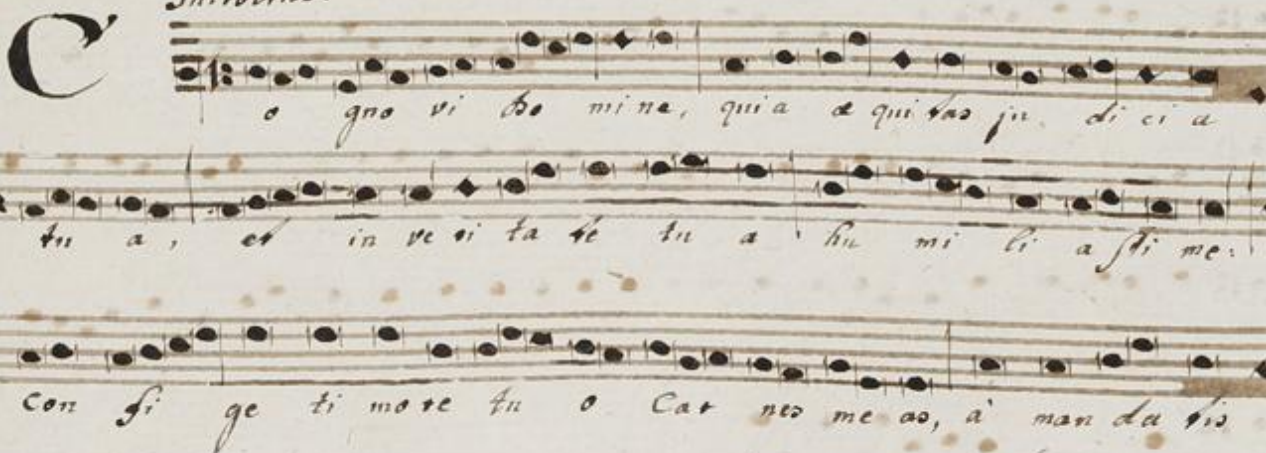 Cognovi Domine, quia æquitas judicia
tua, et in veritate tua humiliasti me:
Confige timore tuo Carnes meas, à mandatis